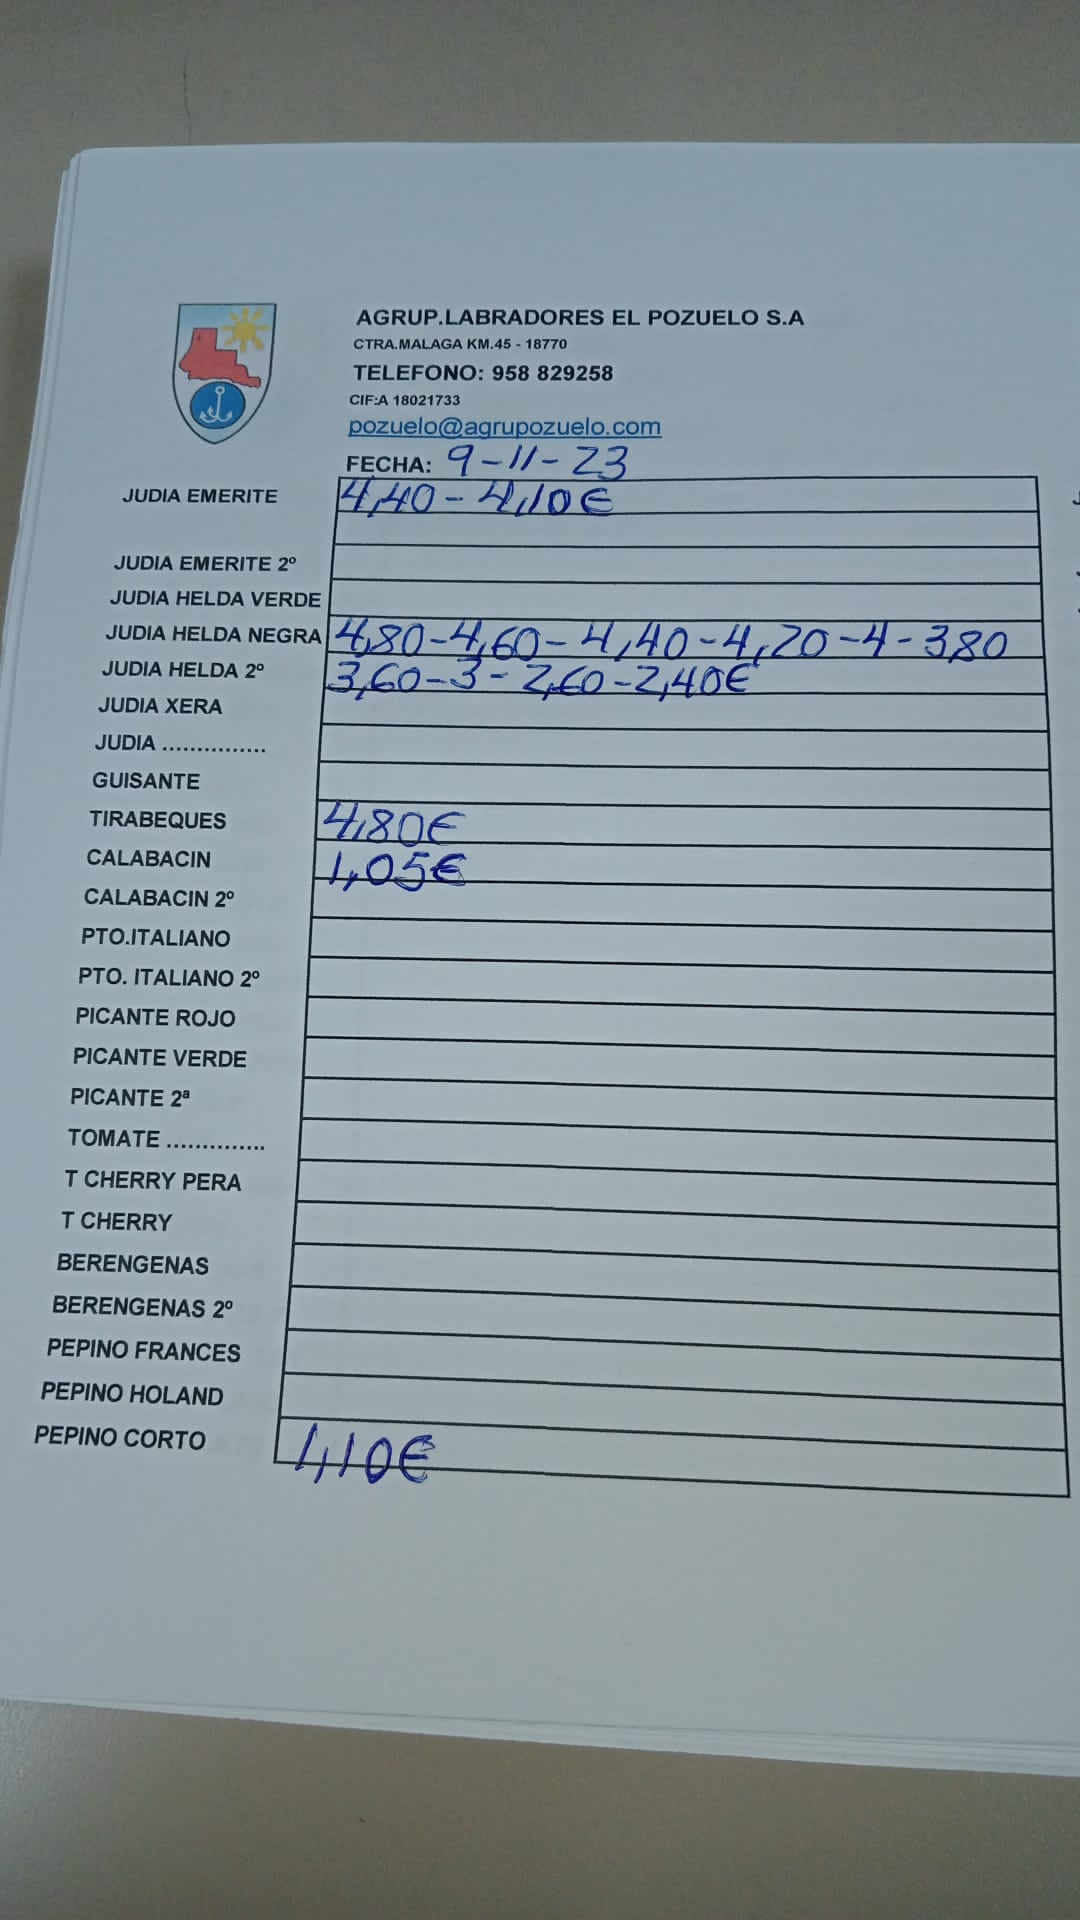 AGRUP.LABRADORES EL POZUELO S.A
CTRA.MALAGA KM.45 - 18770
TELEFONO: 958 829258
CIF:A 18021733
pozuelo@agrupozuelo.com
FECHA: 9-11-23
JUDIA EMERITE 4,40-4,10€
JUDIA EMERITE 2º
JUDIA HELDA VERDE
JUDIA HELDA NEGRA 4,80-4,60-4,40-4,20-4-3,80
JUDIA HELDA 2º 3,60-3-2,60-2,40€
JUDIA XERA
JUDIA ...............
GUISANTE
TIRABEQUES 4,80€
CALABACIN 1,05€
CALABACIN 2º
PTO.ITALIANO
PTO. ITALIANO 2º
PICANTE ROJO
PICANTE VERDE
PICANTE 2ª
TOMATE ..............
T CHERRY PERA
T CHERRY
BERENGENAS
BERENGENAS 2º
PEPINO FRANCES
PEPINO HOLAND
PEPINO CORTO 1,10€